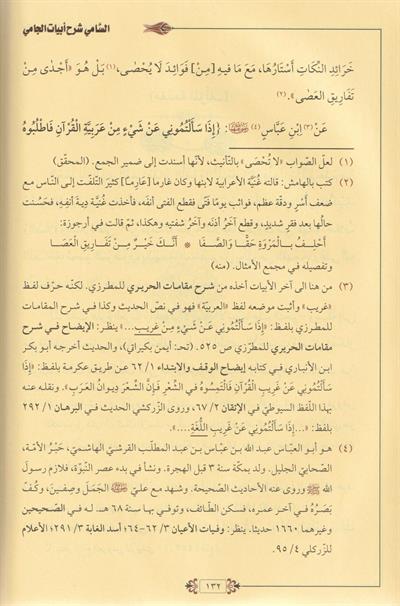 السَّامي شرح أبيات الجامي
خَرَائِدِ النُّكَاتِ أَسْتَارُهَا، مَعَ مَا فِيهِ [مِنْ] فَوَائِدَ لَا يُحْصَى،(١) بَلْ هُوَ «أَجْدَى مِنْ
تَفَارِيقِ العَصَى».(٢)
عَنْ(٣) ابْنِ عَبَّاسٍ(٤) ﷺ: {إِذَا سَأَلْتُمُونِي عَنْ شَيْءٍ مِنْ عَرَبِيَّةِ الْقُرْآنِ فَاطْلُبُوهُ
(١) لعلّ الصّواب «لا تُحْصَى» بالتّأنيث، لأنّها أسندت إلى ضمير الجمع. (المحقّق)
(٢) كتب بالهامش: قالته غُنَيَّة الأعرابية لابنها وكان غارما [عَارِمًا] كثيرَ التّلفّت إلى النّاس مع
ضعف أَسْرٍ ودقّة عظم، فواثب يومًا فتًى فقطع الفتى أنفَه، فأخذت غُنَيَّة دِيةَ أنفِه، فحَسُنت
حالُها بعد فقرٍ شديد، و قطع آخرُ أذنَه وآخرُ شفتيه وهكذا، ثمّ قالت في أرجوزة:
أَحْلِفُ بـالمَرْوَةِ حقًّـا والصَّفـا * أنَّـكَ خَيْـرٌ مِـنْ تَفَاريـقِ العَصَـا
وتفصيله في مجمع الأمثال. (منه)
(٣) من هنا الى آخر الأبيات أخذه من شرح مقامات الحريري للمطرزي. لكنّه حرّف لفظ
«غريب» وأثبت موضعه لفظ «العربيّة» فهو في نصّ الحديث وكذا في شرح المقامات
للمطرزي بلفظ: «إِذَا سَأَلْتُمُونِي عَنْ شَيْءٍ مِنْ غَرِيبِ...» ينظر: الإيضاح في شرح
مقامات الحريري للمطرّزي ص ٥٢٥. (تحـ: أيمن بكيراتي)، والحديث أخرجه أبو بكر
ابن الأنباري في كتابه إيضاح الوقف والابتداء ١/ ٦٢ عن طريق عكرمة بلفظ: «إِذَا
سَأَلْتُمُونِي عَنْ غَرِيبِ الْقُرْآنِ فَالْتَمِسُوهُ فِي الشِّعْرِ فَإِنَّ الشِّعْرَ دِيوَانُ العَرَبِ». ونقله عنه
بهذا اللّفظ السيوطي في الإتقان ٢/ ٦٧، وروى الزّركشي الحديث في البرهان ١/ ٢٩٢
بلفظ: «...إِذَا سَأَلْتُمُونِي عَنْ غَرِيبِ اللُّغَةِ...».
(٤) هو أبو العباس عبد الله بن عباس بن عبد المطلب القرشي الهاشمي، حَبْرُ الأمّة،
الصّحابيّ الجليل. ولد بمكّة سنة ٣ قبل الهجرة. ونشأ في بدء عصر النّبوّة، فلازم رسول
الله ﷺ وروى عنه الأحاديث الصّحيحة. وشهد مع عليّ الجَمَلَ وصِفّين، وكُفَّ
بَصَرُهُ في آخر عمره، فسكن الطّائف، وتوفي بها سنة ٦٨ هـ. له في الصّحيحين
وغيرهما ١٦٦٠ حديثا. ينظر: وفيات الأعيان ٣/ ٦٢-٦٤؛ أسد الغابة ٣/ ٢٩١؛ الأعلام
للزّركلي ٤/ ٩٥.
١٣٢